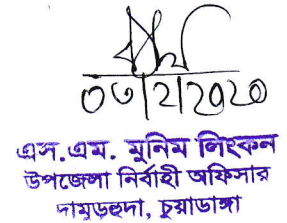 ০৩/২/২০২০
এস.এম. মুনিম লিংকন
উপজেলা নির্বাহী অফিসার
দামুড়হুদা, চুয়াডাঙ্গা